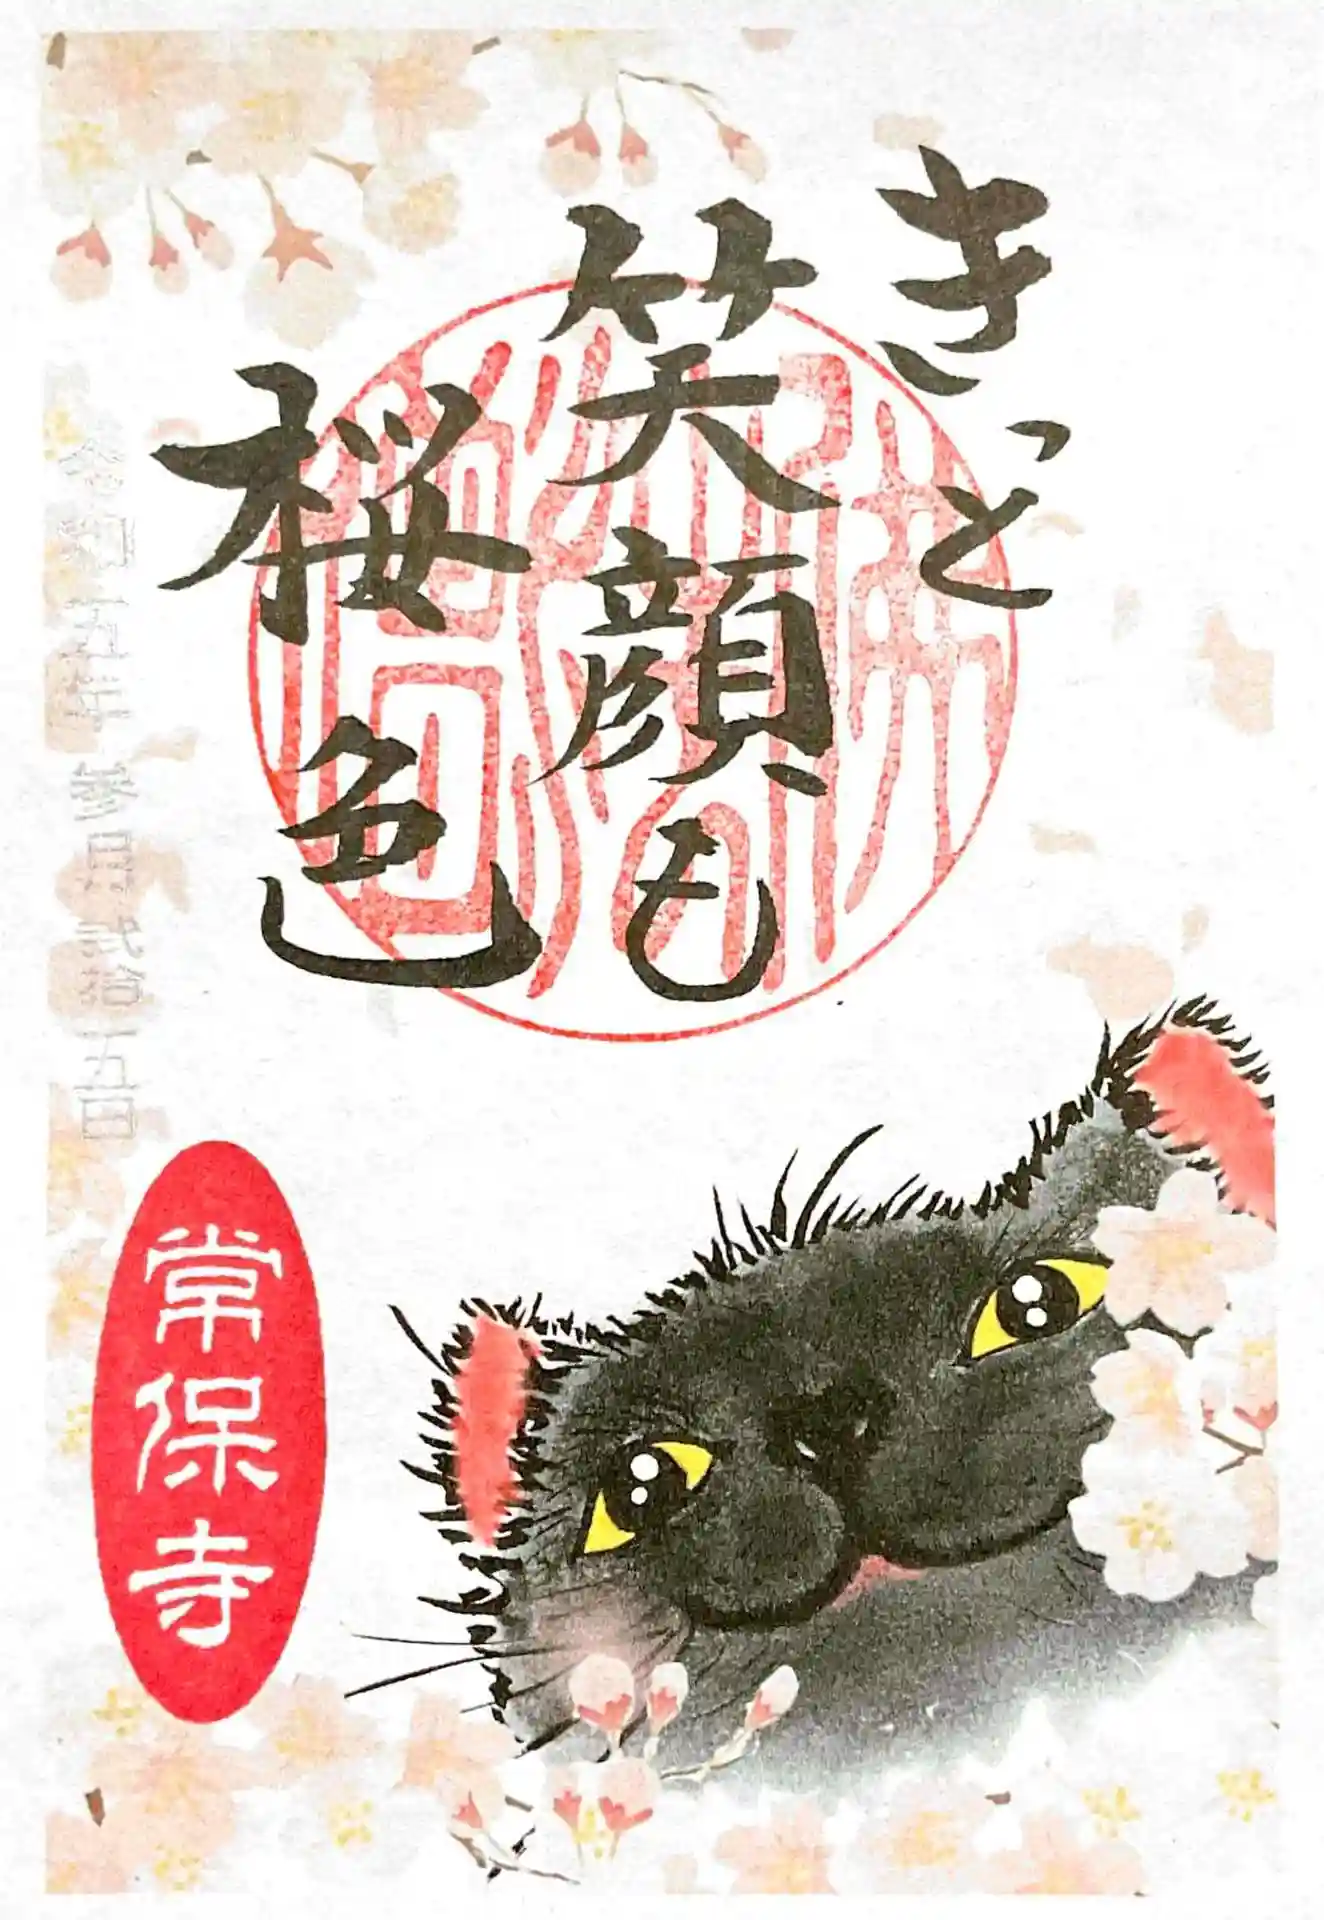 きっと
笑顔も
桜色
令和五年参月弐拾五日
常保寺